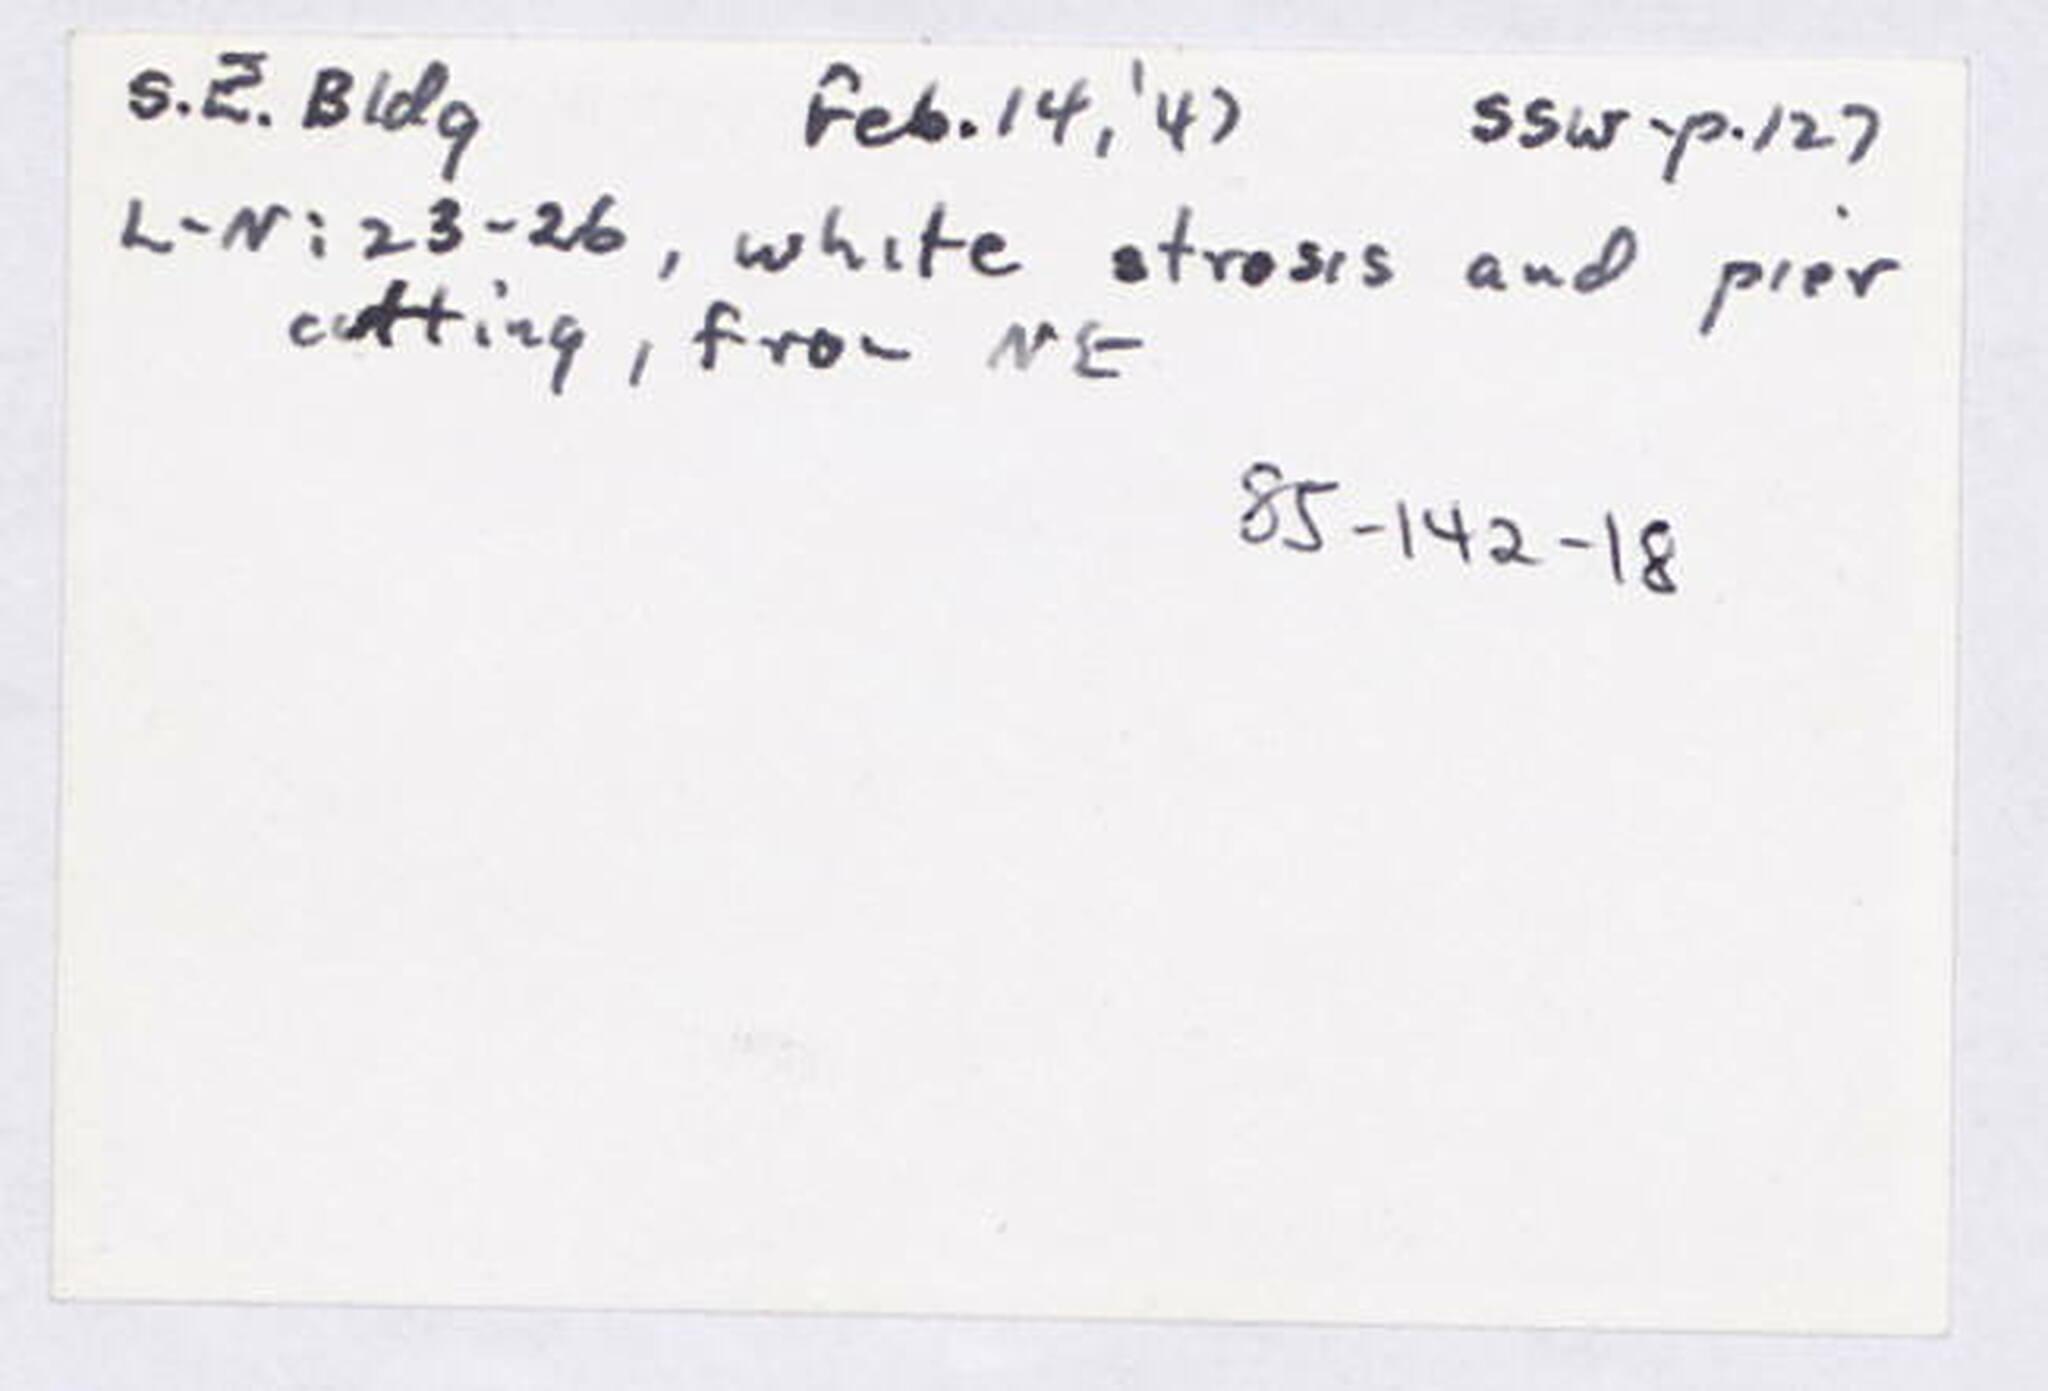 S.E. Bldg Feb. 14, '47 SSW-p.127
L-N: 23-26, white strosis and pier
cutting, from NE
85-142-18